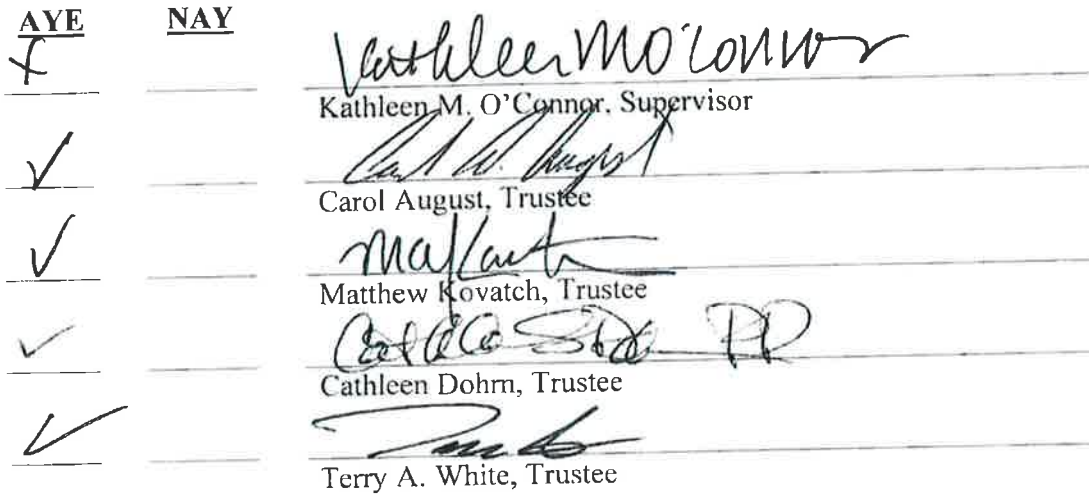 AYE NAY
Kathleen M O'Connor
Kathleen M. O'Connor, Supervisor
Carol W. August
Carol August, Trustee
Matthew Kovatch, Trustee
Cathleen Dohrn, Trustee
Terry A. White, Trustee